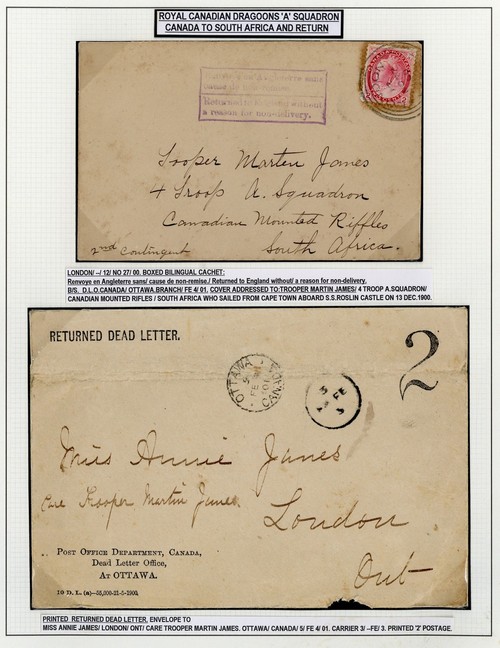 ROYAL CANADIAN DRAGOONS 'A' SQUADRON
CANADA TO SOUTH AFRICA AND RETURN
Returned to England without
a reason for non-delivery.
Trooper Marten James
4 Troop A. Squadron
Canadian Mounted Riffles
2nd Contingent
South Africa.
LONDON/ --/ 12/ NO 27/ 00. BOXED BILINGUAL CACHET:
Renvoye en Angleterre sans/ cause de non-remise./ Returned to England without/ a reason for non-delivery.
B/S. D.L.O.CANADA/ OTTAWA.BRANCH/ FE 4/ 01. COVER ADDRESSED TO:TROOPER MARTIN JAMES/ 4 TROOP A.SQUADRON/
CANADIAN MOUNTED RIFLES / SOUTH AFRICA WHO SAILED FROM CAPE TOWN ABOARD S.S.ROSLIN CASTLE ON 13 DEC.1900.
RETURNED DEAD LETTER.
2
OTTAWA
CANADA
FE
Miss Annie James
Care Trooper Martin James
London
Ont
POST OFFICE DEPARTMENT, CANADA,
Dead Letter Office,
AT OTTAWA.
10 D. L. (a)—55,000-21-5-1900.
PRINTED RETURNED DEAD LETTER, ENVELOPE TO
MISS ANNIE JAMES/ LONDON/ ONT/ CARE TROOPER MARTIN JAMES. OTTAWA/ CANADA/ 5/ FE 4/ 01. CARRIER 3/ --FE/ 3. PRINTED '2' POSTAGE.